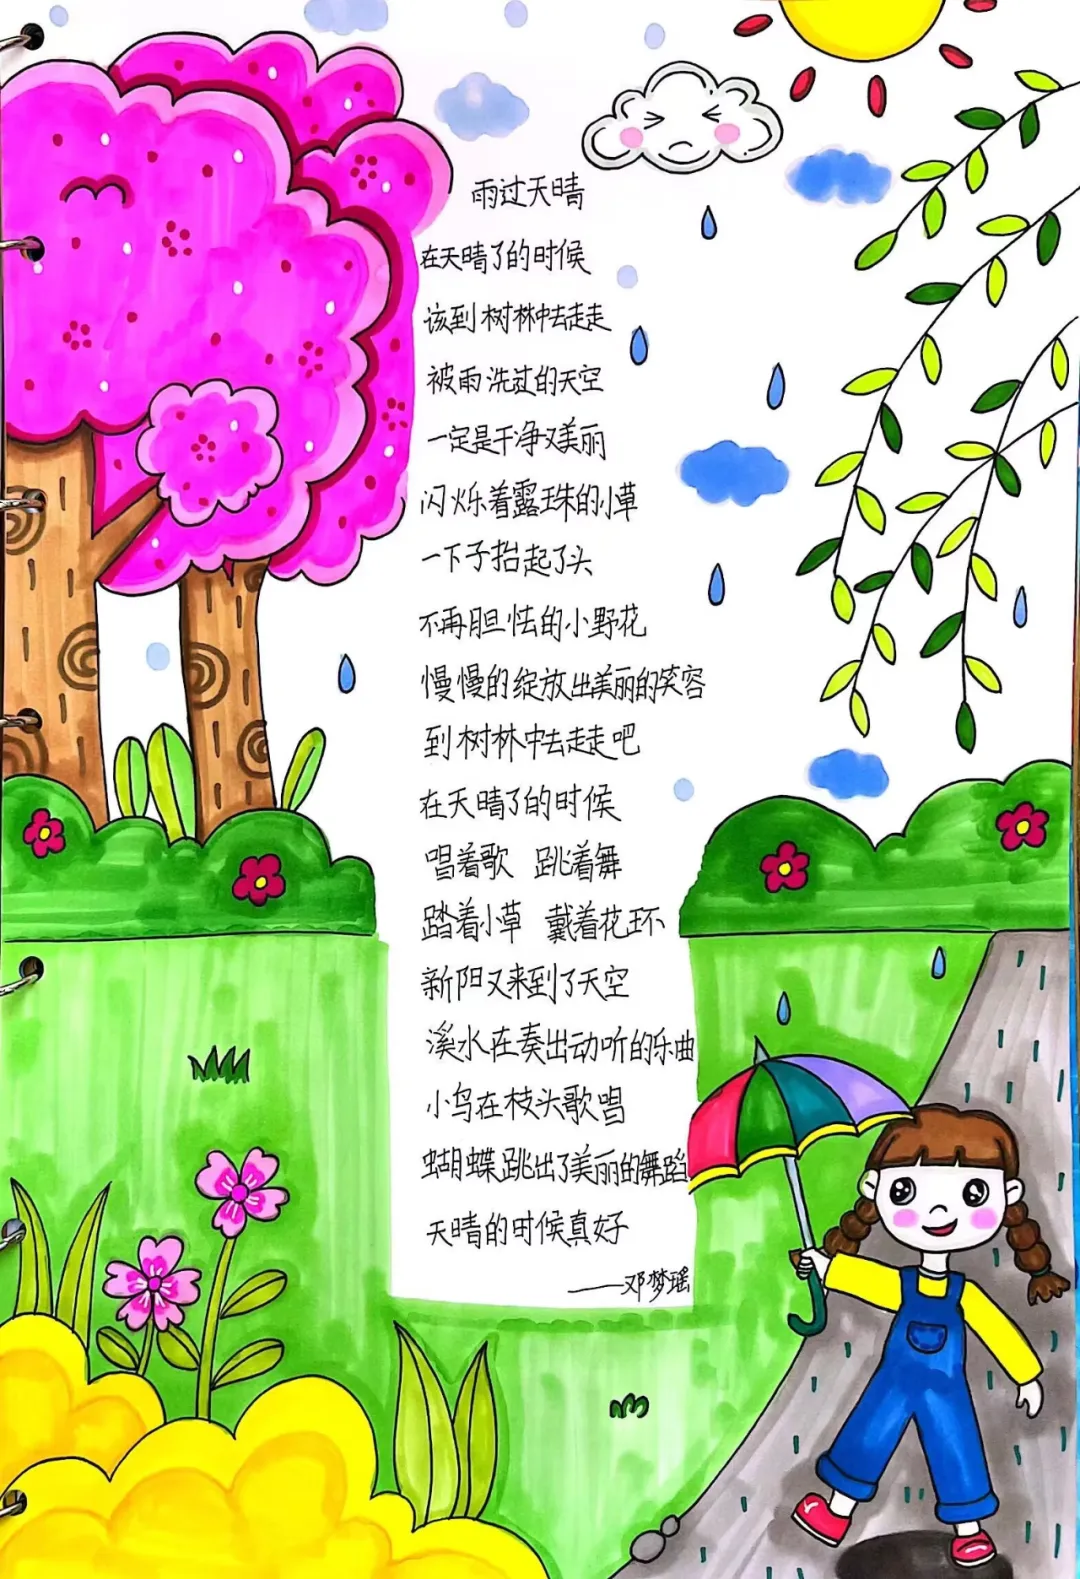 雨过天晴
在天晴了的时候
该到树林中去走走
被雨洗过的天空
一定是干净又美丽
闪烁着露珠的小草
一下子抬起了头
不再胆怯的小野花
慢慢的绽放出美丽的笑容
到树林中去走走吧
在天晴了的时候
唱着歌 跳着舞
踏着小草 戴着花环
新阳又来到了天空
溪水在奏出动听的乐曲
小鸟在枝头歌唱
蝴蝶跳出了美丽的舞蹈
天晴的时候真好
——邓梦瑶